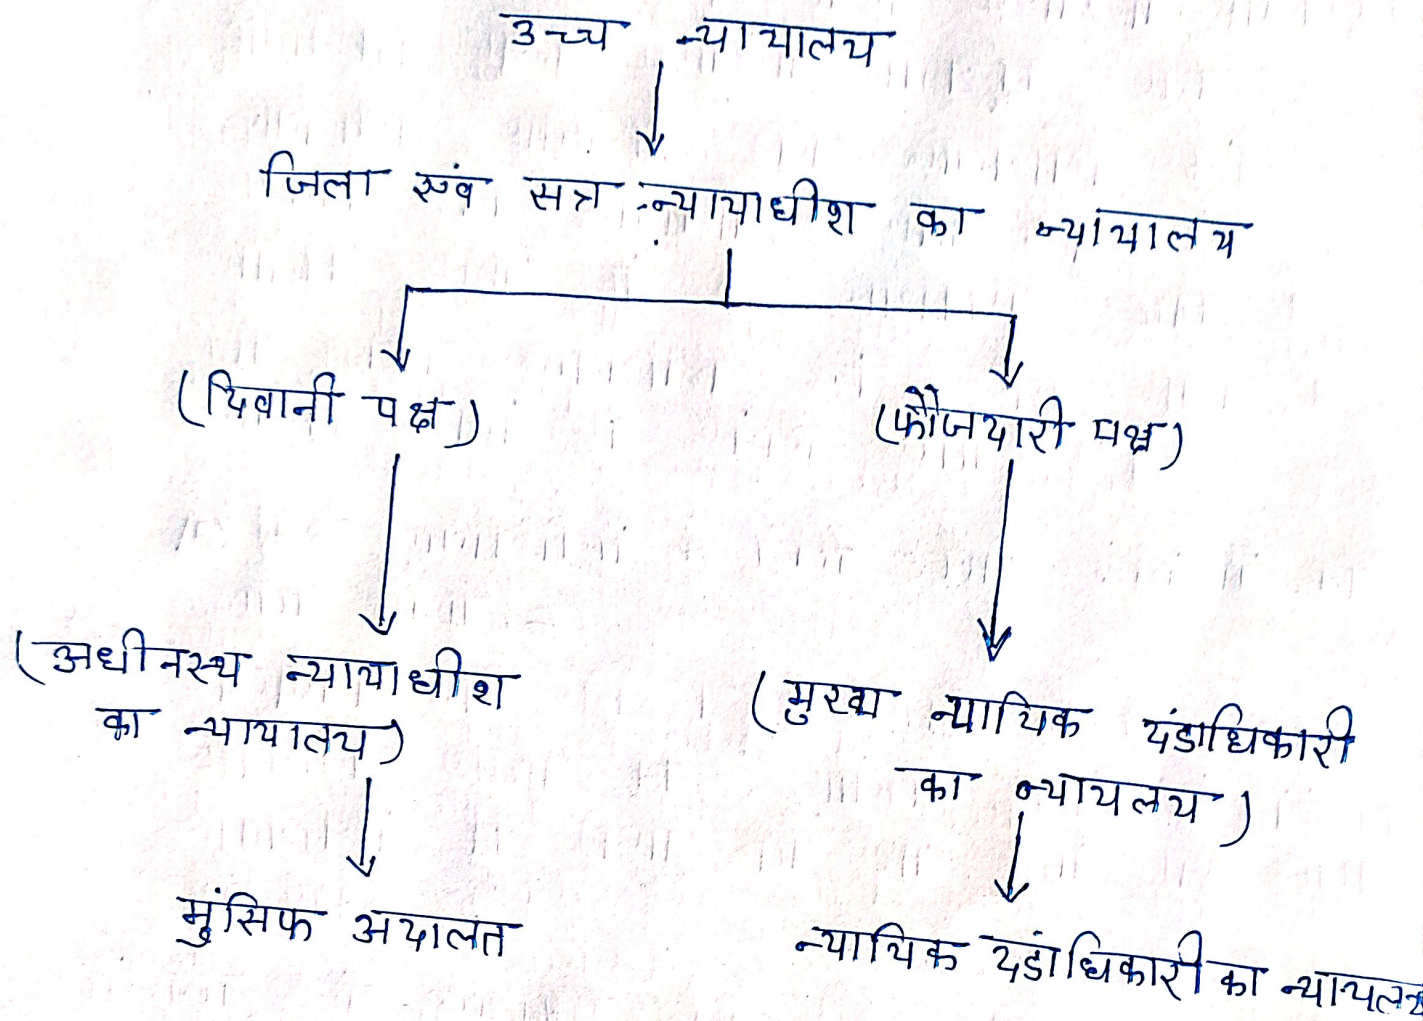 उच्च न्यायालय
जिला एवं सत्र न्यायाधीश का न्यायालय
(दिवानी पक्ष)
(फौजदारी पक्ष)
(अधीनस्थ न्यायाधीश
का न्यायालय)
(मुख्य न्यायिक दंडाधिकारी
का न्यायलय)
मुंसिफ अदालत
न्यायिक दडांधिकारी का न्यायलय